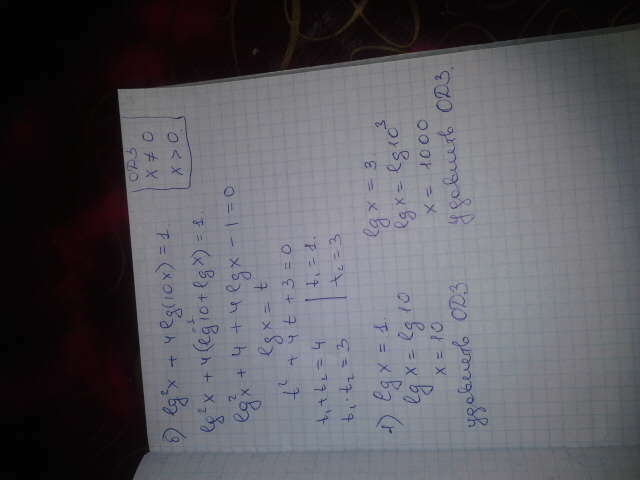 б) lg²x + 4lg(10x) = 1.
ОДЗ
x ≠ 0
x > 0
lg²x + 4(lg10 + lgx) = 1.
1
lg²x + 4 + 4lgx - 1 = 0
lgx = t
t² + 4t + 3 = 0
t₁ + t₂ = 4 | t₁ = 1.
t₁ · t₂ = 3 | t₂ = 3
1) lgx = 1.
lgx = lg10
x = 10
удовлетв ОДЗ
lgx = 3.
lgx = lg10³
x = 1000
удовлетв ОДЗ.